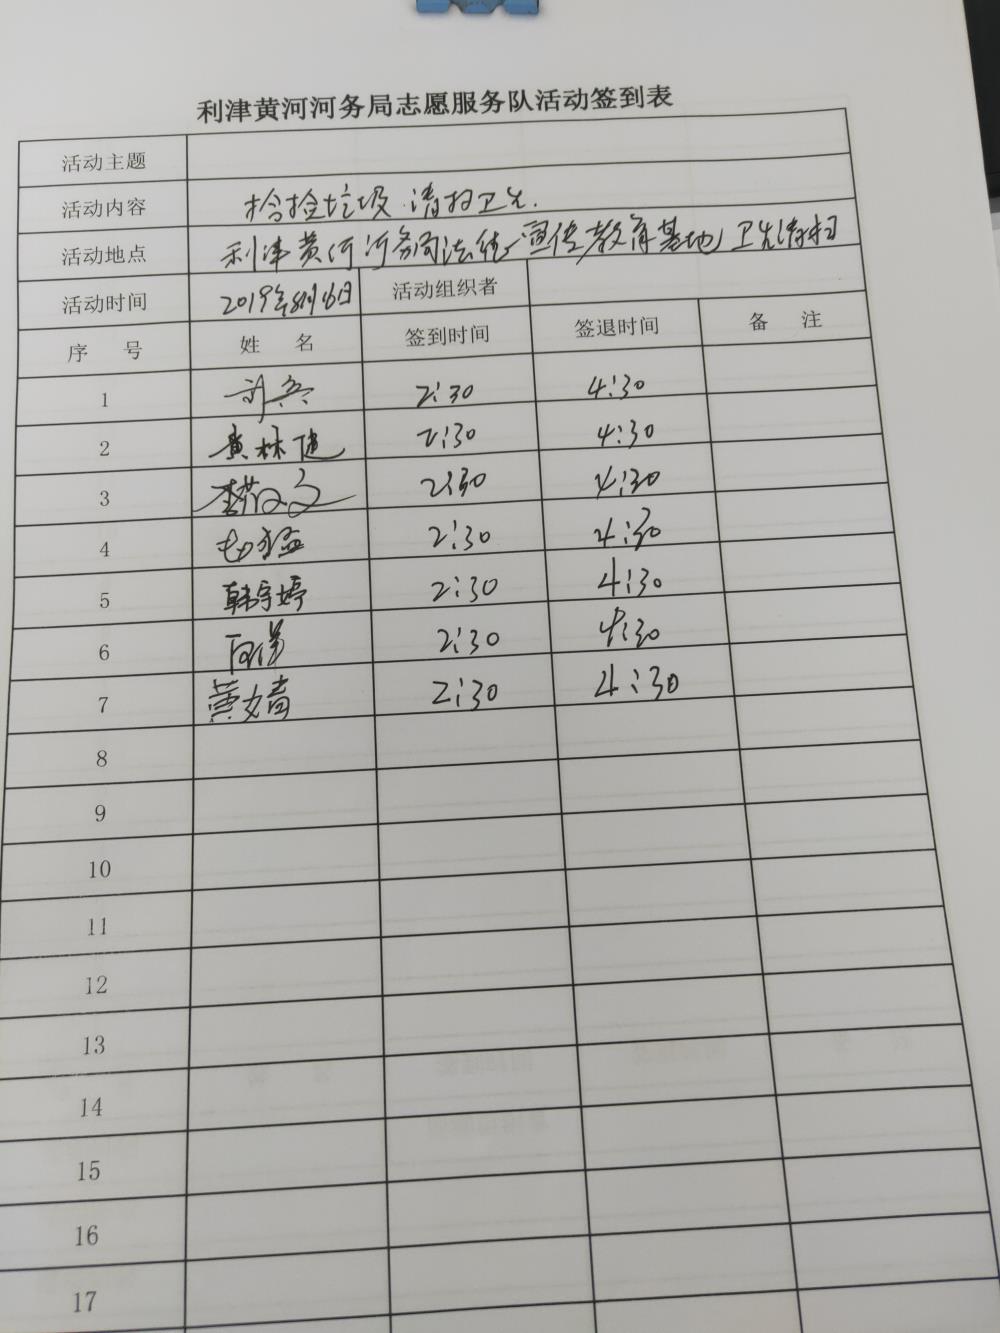 利津黄河河务局志愿服务队活动签到表
活动主题
活动内容 拾捡垃圾.清扫卫生.
活动地点 利津黄河河务局法德宣传教育基地卫生清扫
活动时间 2019年8月16日 活动组织者
序 号 姓 名 签到时间 签退时间 备 注
1 2:30 4:30
2 黄林健 2:30 4:30
3 2:30 4:30
4 2:30 4:30
5 韩宇婷 2:30 4:30
6 2:30 4:30
7 黄文靖 2:30 4:30
8
9
10
11
12
13
14
15
16
17